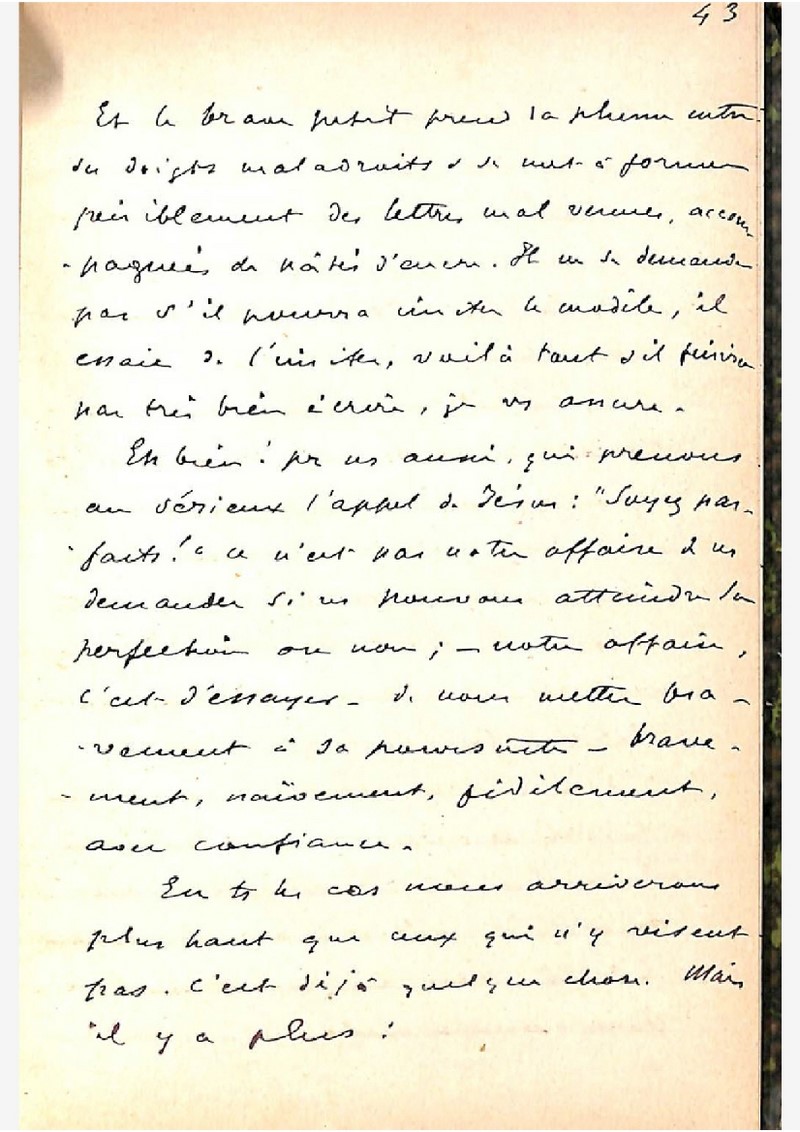 43
Et le brave petit prend la plume entre
ses doigts maladroits & se met à former
péniblement des lettres mal venues, accom-
-pagnées de pâtés d'encre. Il ne se demande
pas s'il pourra imiter le modèle, il
essaie de l'imiter, voilà tout & il finira
par très bien écrire, je vs assure.
Eh bien! pr ns aussi, qui prenons
au sérieux l'appel de Jésus : "Soyez par-
-faits!" ce n'est pas notre affaire d ns
demander si ns pouvons atteindre la
perfection ou non ; – notre affaire,
c'est d'essayer – de nous mettre bra-
-vement à sa poursuite – brave-
-ment, naïvement, fidèlement,
avec confiance.
En ts les cas nous arriverons
plus haut que ceux qui n'y visent
pas. C'est déjà quelque chose. Mais
il y a plus !